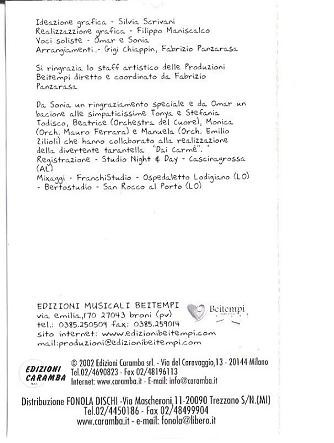 Ideazione grafica - Silvia Scrivani
Realizzazione grafica - Filippo Maniscalco
Voci soliste - Omar e Sonia
Arrangiamenti - Gigi Chiappin, Fabrizio Panzarasa
Si ringrazia lo staff artistico delle Produzioni
Beitempi diretto e coordinato da Fabrizio
Panzarasa
Da Sonia un ringraziamento speciale e da Omar un
bacione alle simpaticissime Tonya e Stefania
Todisco, Beatrice (Orchestra del Cuore), Monica
(Orch. Mauro Ferrara) e Manuela (Orch. Emilio
Zilioli) che hanno collaborato alla realizzazione
della divertente tarantella "Dai Carmé".
Registrazione - Studio Night & Day - Cascinagrossa
(AL)
Mixaggi - FranchiStudio - Ospedaletto Lodigiano (LO)
- Bertostudio - San Rocco al Porto (LO)
EDIZIONI MUSICALI BEITEMPI
via emilia,170 27043 broni (pv)
tel.: 0385.250509 fax: 0385.259014
sito internet: www.edizionibeitempi.com
mail:produzioni@edizionibeitempi.com
Beitempi
EDIZIONI
CARAMBA
© 2002 Edizioni Caramba srl. - Via del Caravaggio,13 - 20144 Milano
Tel.02/4690823 - Fax 02/48196113
Internet: www.caramba.it - E-mail: info@caramba.it
Distribuzione FONOLA DISCHI -Via Mascheroni,11-20090 Trezzano S/N.(MI)
Tel.02/4450186 - Fax 02/48499904
www.caramba.it - e-mail: fonola@libero.it